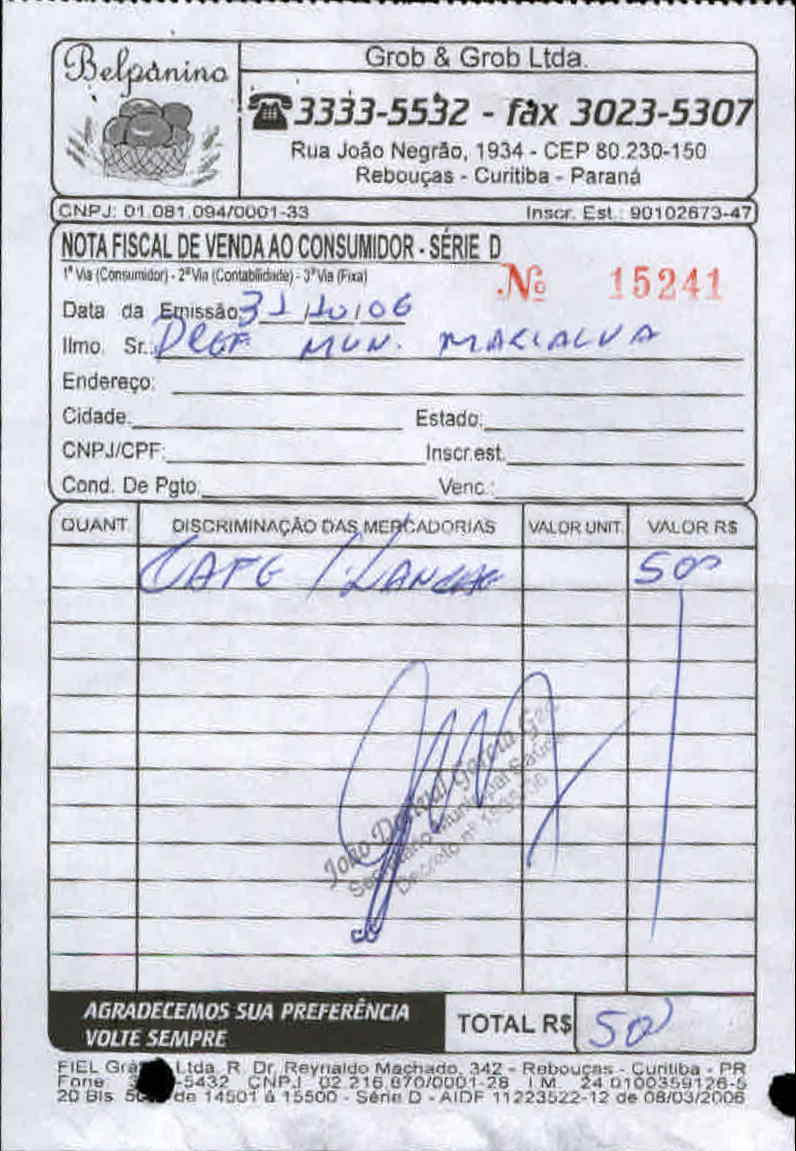 Belpanino
Grob & Grob Ltda.
☎ 3333-5532 - fax 3023-5307
Rua João Negrão, 1934 - CEP 80.230-150
Rebouças - Curitiba - Paraná
CNPJ: 01.081.094/0001-33 Inscr. Est.: 90102673-47
NOTA FISCAL DE VENDA AO CONSUMIDOR - SÉRIE D
1ª Via (Consumidor) - 2ª Via (Contabilidade) - 3ª Via (Fixa)
Nº 15241
Data da Emissão: 31/10/06
Ilmo. Sr.: PREF. MUN. MARIALVA
Endereço:
Cidade: Estado:
CNPJ/CPF: Inscr.est.
Cond. De Pgto. Venc.:
QUANT. DISCRIMINAÇÃO DAS MERCADORIAS VALOR UNIT. VALOR R$
CAFE / LANCHE 50
João Dorival Garcia
Secretário Municipal Saúde
Decreto nº
AGRADECEMOS SUA PREFERÊNCIA
VOLTE SEMPRE
TOTAL R$ 50
FIEL Ltda. R. Dr. Reynaldo Machado, 342 - Rebouças - Curitiba - PR
Fone -5432 CNPJ 02.216.670/0001-28 I.M. 24.0100359126-5
20 Bls. de 14501 à 15500 - Série D - AIDF 11223522-12 de 08/03/2006